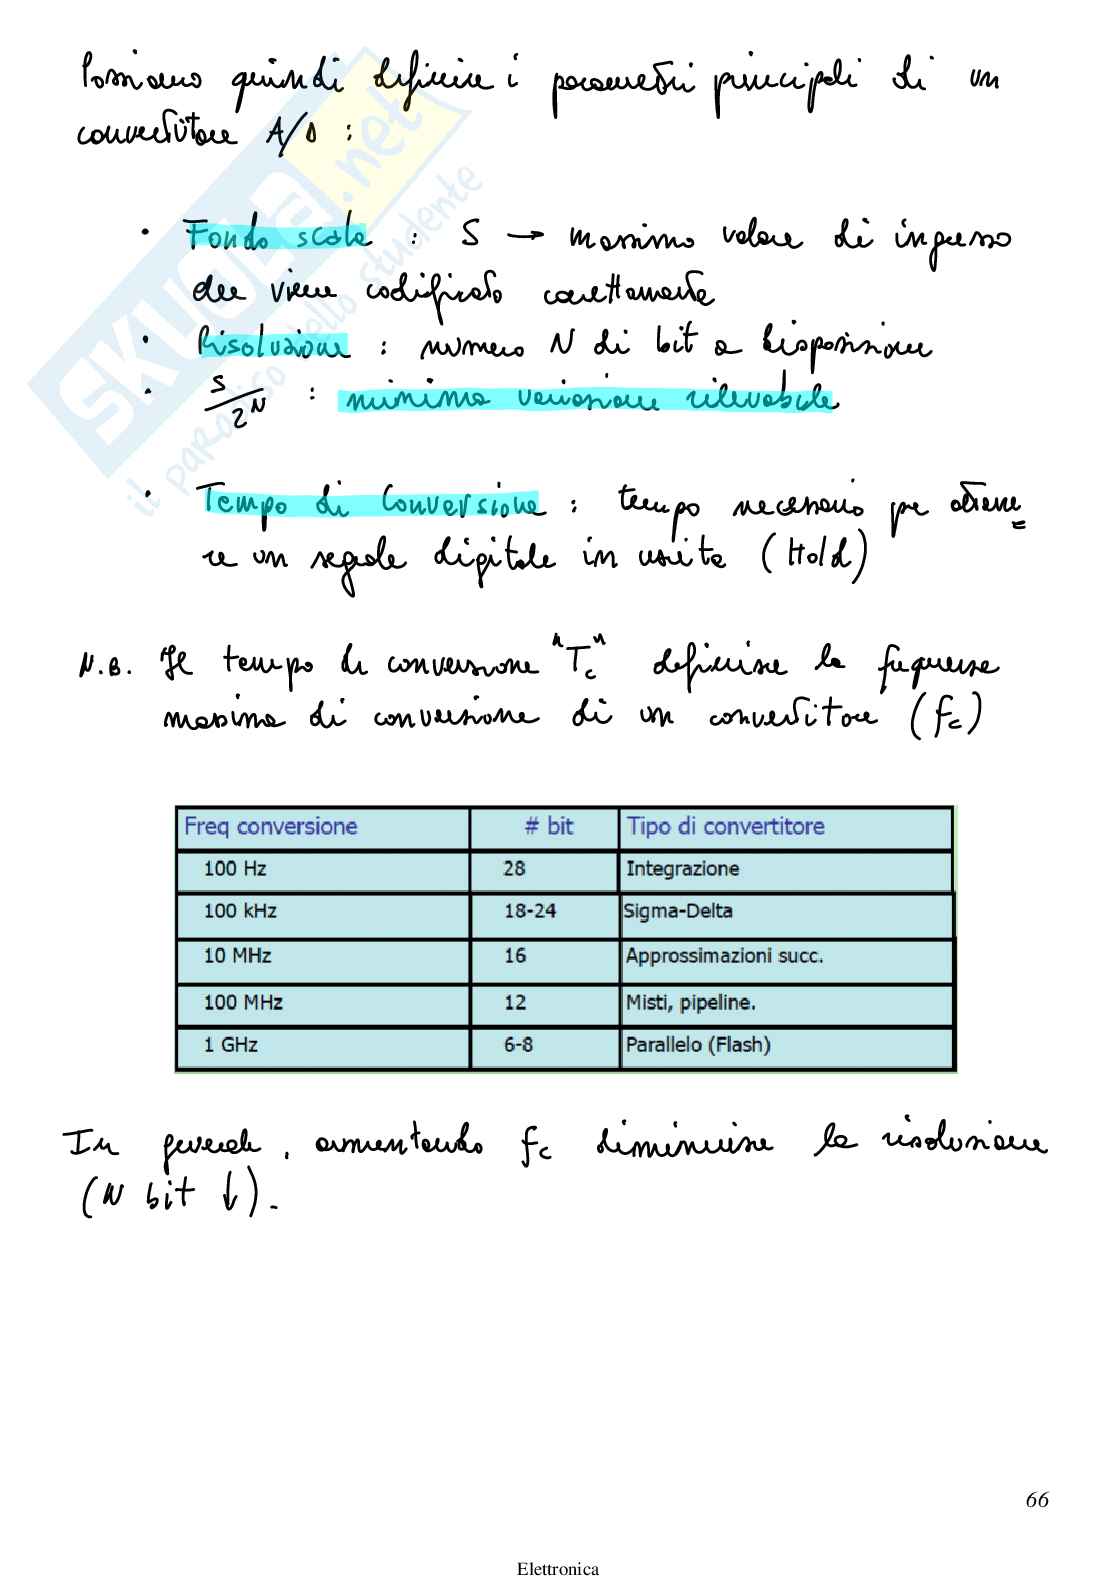 Possiamo quindi definire i parametri principali di un
convertitore A/D :
• Fondo scala : S → massimo valore di ingresso
che viene codificato correttamente
• Risoluzione : numero N di bit a disposizione
• S/2^N : minima variazione rilevabile
• Tempo di Conversione : tempo necessario per ottene=
re un segnale digitale in uscita (Hold)
N.B. Il tempo di conversione "Tc" definisce la frequenza
massima di conversione di un convertitore (fc)
Freq conversione # bit Tipo di convertitore
100 Hz 28 Integrazione
100 kHz 18-24 Sigma-Delta
10 MHz 16 Approssimazioni succ.
100 MHz 12 Misti, pipeline.
1 GHz 6-8 Parallelo (Flash)
In generale, aumentando fc diminuisce la risoluzione
(N bit ↓).
SKUOLA.net
il paradiso dello studente
66
Elettronica